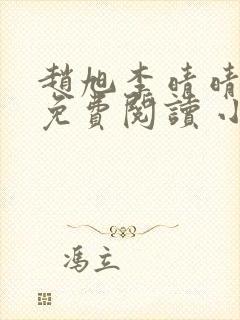 趙旭李晴晴
免費閱讀小
馮立